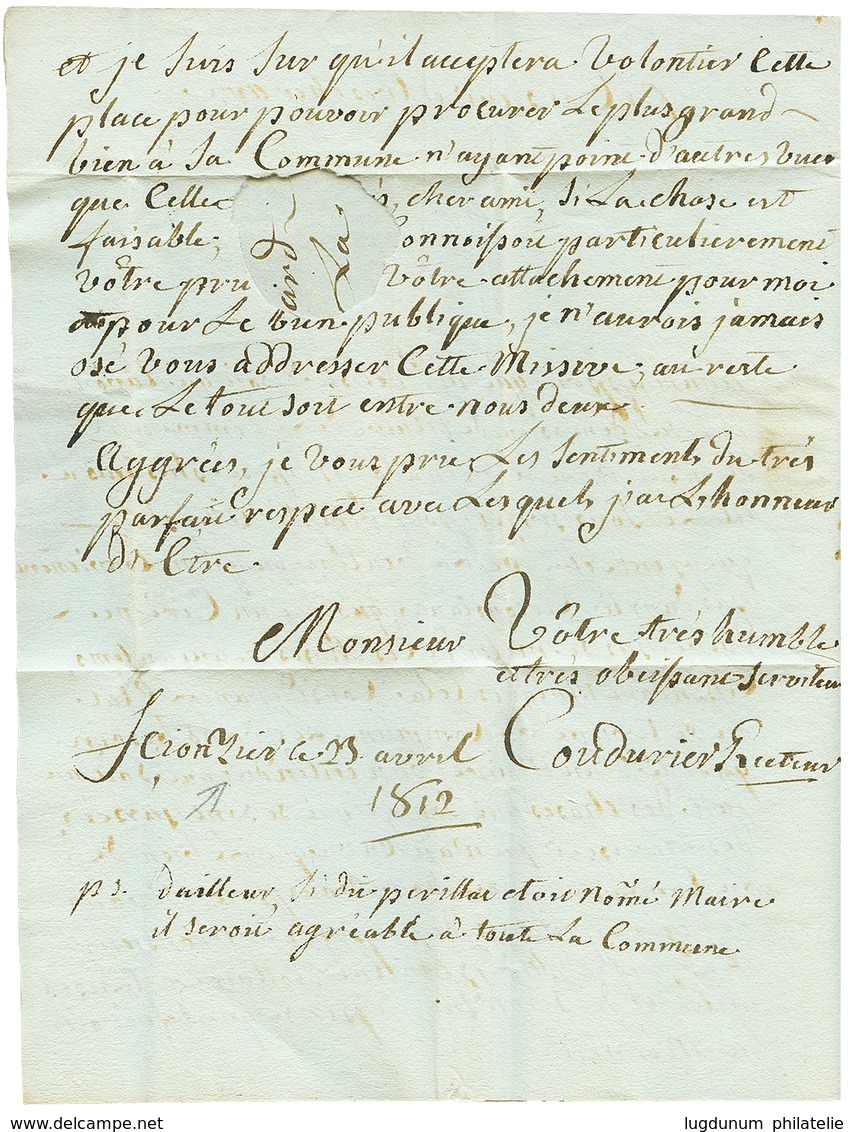 et je suis sur qu'il acceptera Volontier Cette
place pour pouvoir procurer Le plus grand
bien à Sa Commune n'ayant point d'autres vues
que Celle cher ami, Si La chose est
faisable; onnoissoit particulierement
Vôtre pru Vôtre attachement pour moi
et pour Le bien publique, je n'aurois jamais
osé Vous addresser Cette Missive, au reste
que Le tout soit entre nous deux
Aggréés, je Vous prie Les Sentiments du trés
parfait respect avec Lesquels j'ai L'honneur
d'Etre
Monsieur Vôtre trés humble
et trés obeissant Serviteur
Scionzier Le 23 avril Coudurier Recteur
1812
ps. d'ailleur Si du perillat etoit Nomé Maire
il seroit agréable à toute La Commune
lugdunum philatelie